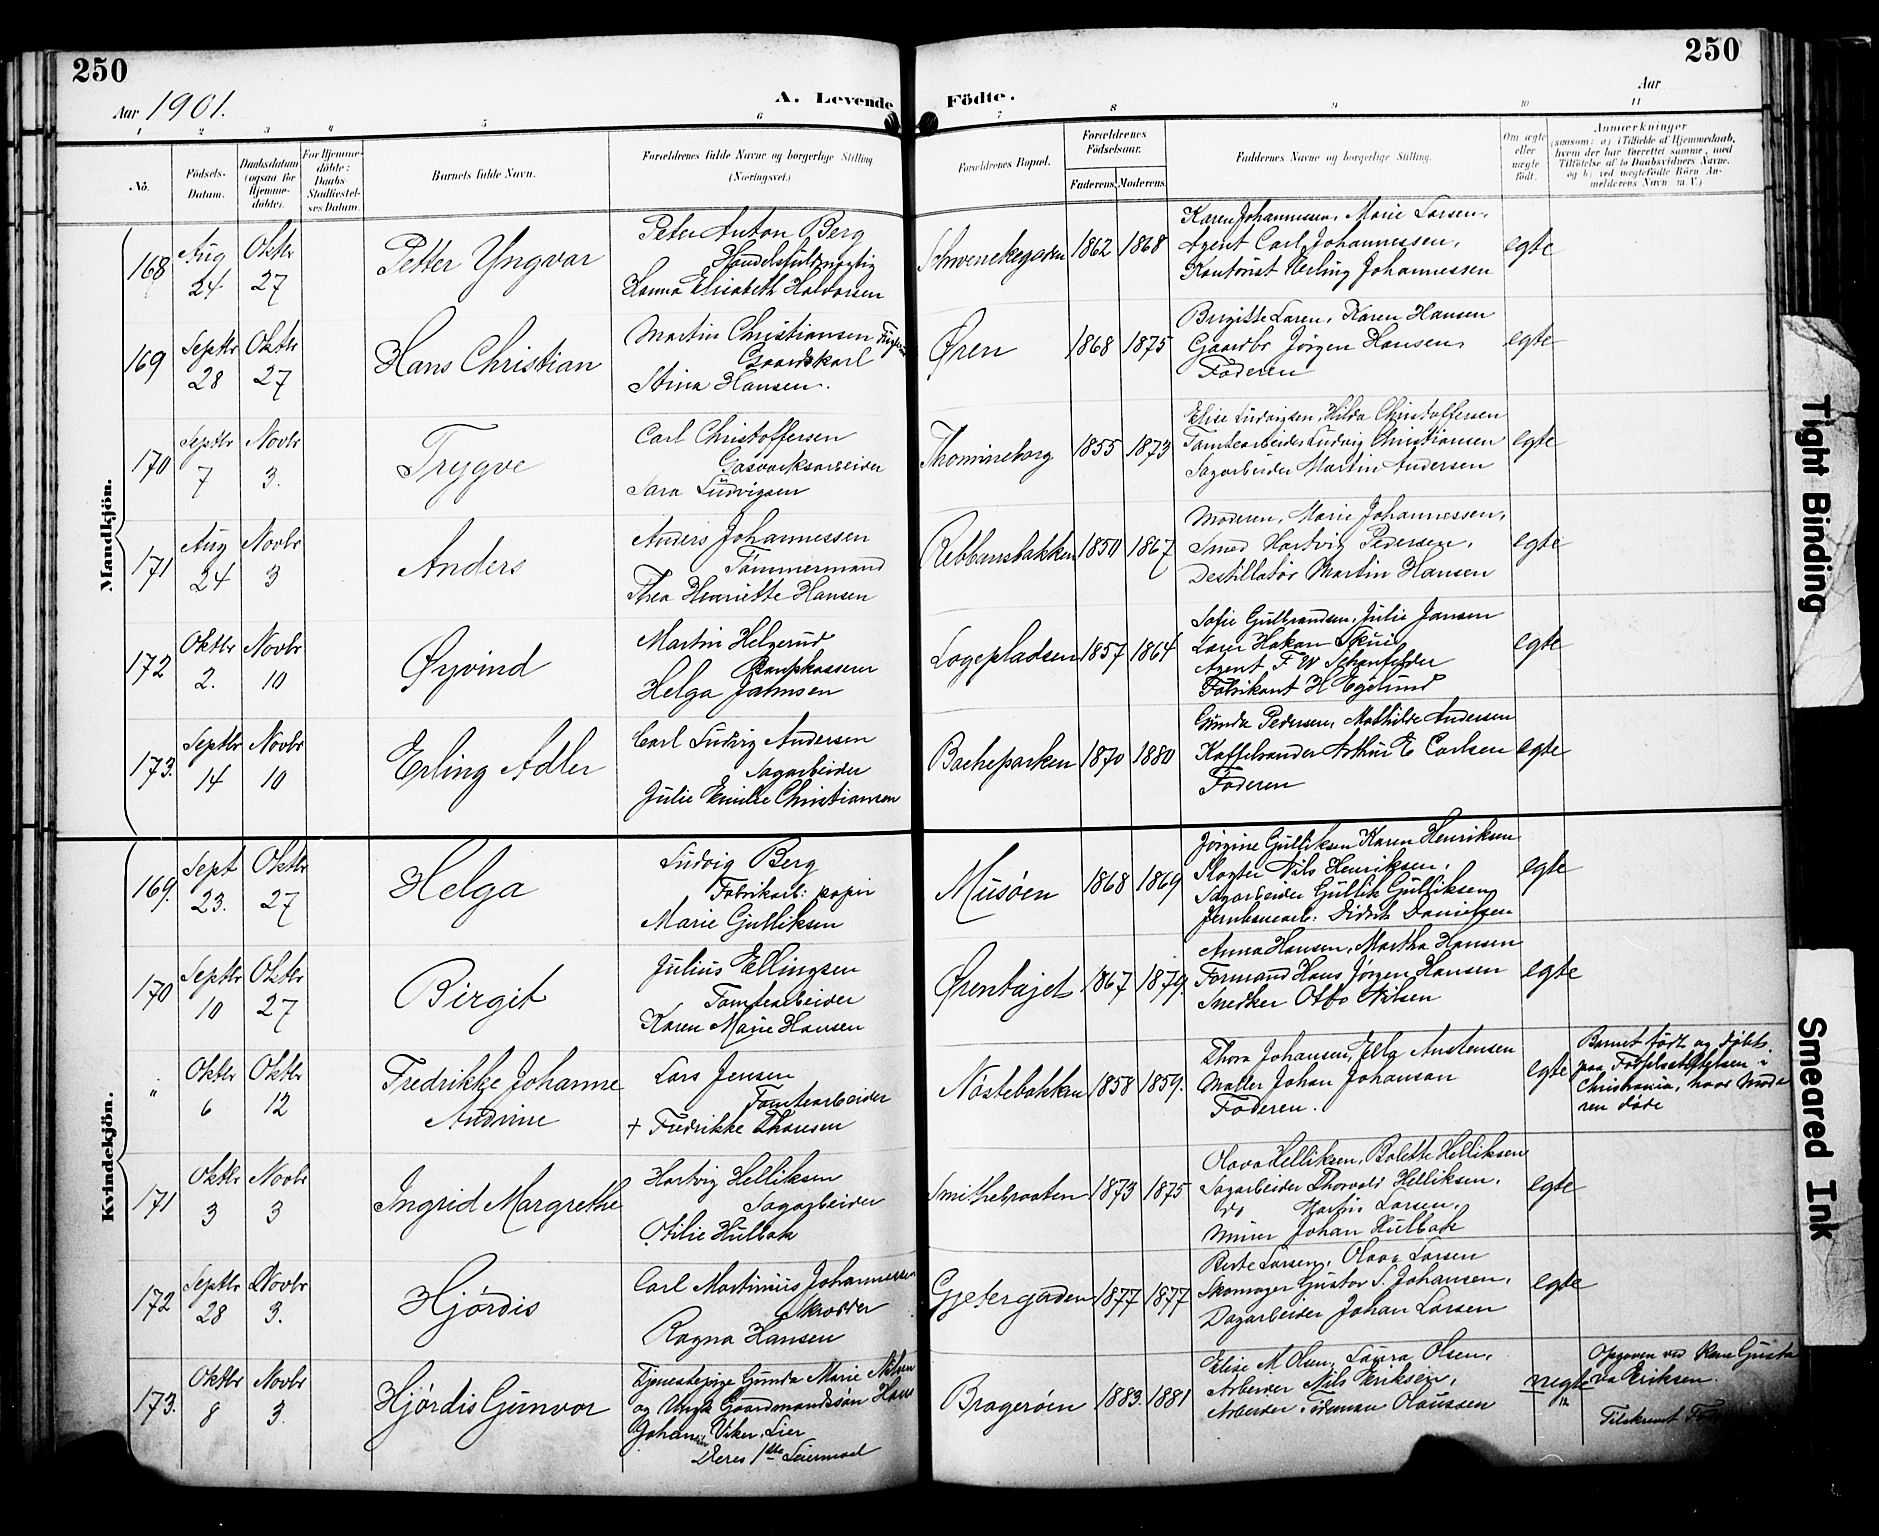 250
250
Aar 1901.
A. Levende Födte.
Aar
1 2 3 4 5 6 7 8 9 10 11
No.
Födsels-Datum.
Daabsdatum (ogsaa for Hjemme-döbte).
For Hjemme-döbte: Daabs-Stadfæstel-ses Datum.
Barnets fulde Navn.
Forældrenes fulde Navne og borgerlige Stilling. (Næringsvei.)
Forældrenes Bopæl.
Forældrenes Födselsaar.
Faderens. Moderens.
Faddernes Navne og borgerlige Stilling.
Om ægte eller uægte födt.
Anmærkninger
(saasom: a) i Tilfælde af Hjemmedaab, hvem der har forrettet samme, med Tilföielse af to Daabsvidners Navne, og b) ved uægtefödte Börn An-melderens Navn m. V.)
Mandkjön.
168 Aug 24 Oktbr 27 Petter Yngvar
Peter Anton Berg
Handelsfuldmægtig
Hanna Elisabeth Halvorsen
Schwenckegaden 1862 1868
Karen Johannessen, Marie Larsen,
Agent Carl Johannessen,
Kontorist Herling Johannessen
egte
169 Septbr 28 Oktbr 27 Hans Christian
Martin Christiansen
Gaardskarl
Stina Hansen.
Øren 1868 1875
Brigitte Laren, Karen Hansen
Gaardbr Jörgen Hansen,
Faderen
egte
170 Septbr 7 Novbr 3. Trygve
Carl Christoffersen
Gasværksarbeider
Sara Ludvigsen
Thomineborg 1855 1873
Elise Ludvigsen, Hilda Christoffersen
Tomtearbeider Ludvig Christiansen
Sagarbeider Martin Andersen
egte
171 Aug 24 Novbr 3 Anders
Anders Johannessen
Tømmermand
Thea Henriette Hansen
Rebbansbakken 1850 1867
Moderen, Marie Johannessen,
Smed Hartvig Pedersen,
Destillatör Martin Hansen
egte
172 Oktbr 2. Novbr 10 Øyvind
Martin Helgerud
Helga Jahnsen
Løgepladsen 1857 1864
Sofie Gulbrandsen, Julie Jansen
Lærer Hakon Skui,
Agent F W Schønfelder
Fabrikant H Egelund
egte
173. Septbr 14 Novbr 10 Erling Adler
Carl Ludvig Andersen
Sagarbeider
Julie Emilie Christiansen
Bacheparken 1870 1880
Gunda Pedersen, Mathilde Andersen
Kaffebrænder Arthur E Carlsen
Faderen
egte
Kvindekjön.
169. Sept 23. Oktbr 27 Helga
Ludvig Berg
Fabrikarb: papir
Marie Gulliksen
Musøen 1868 1869
Jörgine Gulliksen Karen Henriksen
Slagter Nils Henriksen,
Sagarbeider Gullik Gulliksen
Jernbanearb: Didrik Danielsen
egte
170 Septbr 10 Oktbr 27 Birgit
Julius Ellingsen
Tomtearbeider
Karen Marie Hansen
Ørentajet 1867 1879.
Anna Hansen, Martha Hansen
Formand Hans Jörgen Hansen
Snedker Otto Nilsen
egte
" Oktbr 6 Oktbr 12 Fredrikke Johanne Andrine
Lars Jensen
Tomtearbeider
+ Fredrikke Thonsen
Nøstebakken 1858 1859.
Thora Johansen, Ella Anstensen
Maler Johan Johansen
Faderen.
egte
Barnet født og døbt
paa Fødselsstiftelsen i
Christiania, hvor Mode
ren døde
171 Oktbr 3 Novbr 3 Ingrid Margrethe
Hartvig Helliksen
Sagarbeider
Otilie Hulbak
Smithebraaten 1873 1875
Olava Helliksen, Bolette Helliksen
Sagarbeider Thorvald Helliksen,
do Martin Larsen,
Murer Johan Hulbak
egte
172 Septbr 28 Novbr 3. Hjördis
Carl Martinius Johannessen
Skrædder
Ragna Hansen
Gjetergaden 1877 1877
Berte Larsen, Olava Larsen
Skomager Gustav S. Johansen,
Dagarbeider Johan Larsen
egte
173. Oktbr 8 Novbr 3. Hjördis Gunvor
Tjenestepige Gunda Marie Nilsen
og Ungk Gaardmandssøn Hans
Johan Viker, Lier
Deres 1ste Leiermaal
Bragerøen 1883. 1881
Elise M Olsen, Laura Olsen,
Arbeider Nils Eriksen,
Arbeider Tideman Olaussen
uegte
Opgaven ved Kone Gusta
va Eriksen.